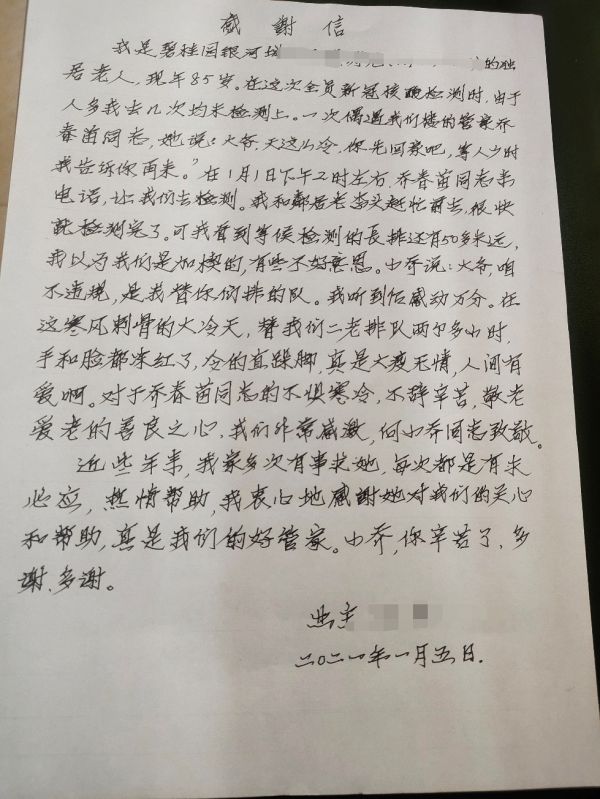 感謝信
我是碧桂园银河城 的独
居老人，现年85岁。在这次全员新冠核酸检测时，由于
人多我去几次均未检测上。一次偶遇我们楼的管家乔
春苗同志，她说：大爷，天这么冷，你先回家吧，等人少时
我告诉你再来。”在1月1日下午2时左右，乔春苗同志来
电话，让我们去检测。我和鄰居老李头赶忙前去，很快
就检测完了。可我看到等候检测的長排还有50多米远，
我以为我们是加楔的，有些不好意思。小乔说：大爷，咱
不违规，是我替你们排的队。我听到后感动万分。在
这寒风刺骨的大冷天，替我们二老排队两个多小时，
手和脸都冻红了，冷的直跺脚，真是大疫无情，人间有
爱啊。对于乔春苗同志的不惧寒冷，不辞辛苦，敬老
爱老的善良之心，我们非常感激，向小乔同志致敬。
近些年来，我家多次有事求她，每次都是有求
必应，热情帮助，我衷心地感謝她对我们的关心
和帮助，真是我们的好管家。小乔，你辛苦了，多
谢、多谢。
业主
二〇二一年一月五日.